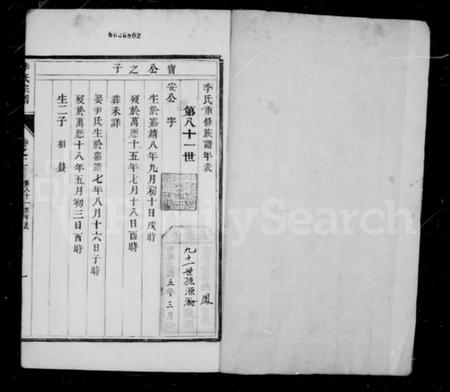 6026802
季氏重修族譜年表
第八十一世
寶公之子
安公 字
生於嘉靖八年九月初十日戌時
歿於萬曆十五年七月十八日酉時
葬未詳
娶尹氏生於嘉靖七年八月十六日子時
歿於萬曆十八年五月初三日酉時
生二子 相
九十一世孫
鳳
五年三月
FamilySearch